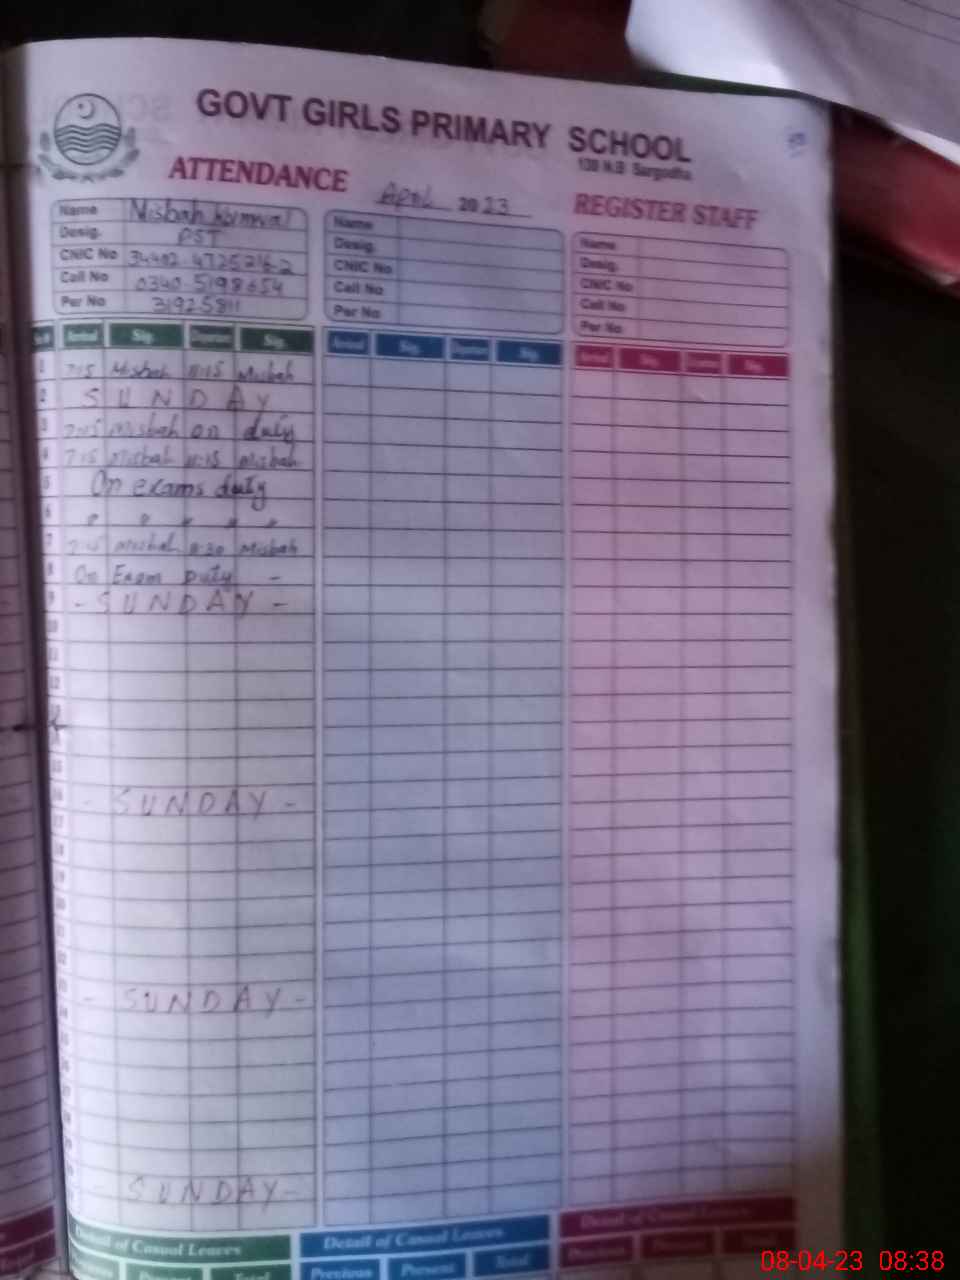 GOVT GIRLS PRIMARY SCHOOL
138 N.B Sargodha
ATTENDANCE April 2023 REGISTER STAFF
Name Misbah Name Name
Desig. PST Desig. Desig.
CNIC No CNIC No CNIC No
Cell No 0340 5198654 Cell No Cell No
Per No 31925811 Per No Per No
Arrival Sig. Departure Sig. Arrival Sig. Departure Sig. Arrival Sig. Departure Sig.
1 7:15 Misbah 11:15 Misbah
2 SUNDAY
3 7:15 Misbah on duty
4 7:15 Misbah 11:15 Misbah
5 On exams duty
6 " " " " "
7 7:15 Misbah 11:30 Misbah
8 On Exam Duty -
9 - SUNDAY -
10
11
12
15
16 - SUNDAY -
17
18
19
20
- SUNDAY -
- SUNDAY -
Detail of Casual Leaves Detail of Casual Leaves Detail of Casual Leaves
Previous Present Total Previous Present Total Previous Present Total
08-04-23 08:38